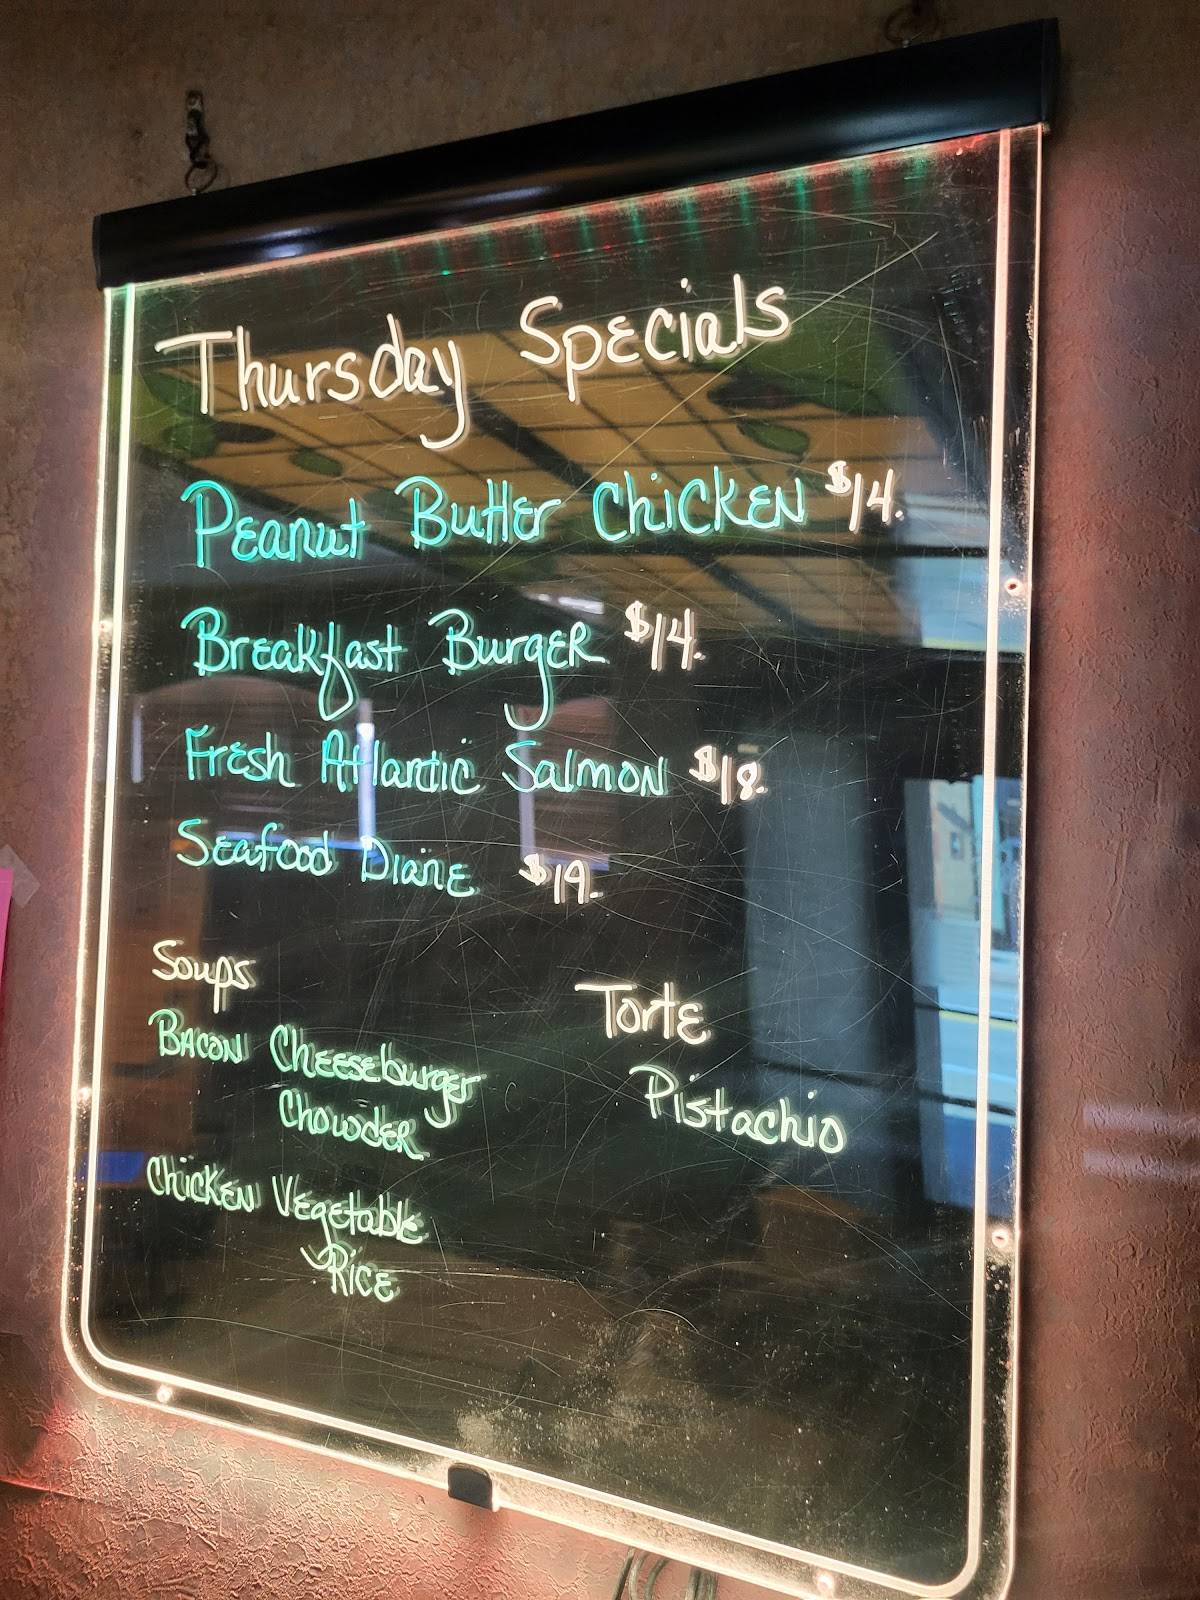 Thursday Specials
Peanut Butter Chicken $14.
Breakfast Burger $14.
Fresh Atlantic Salmon $18.
Seafood Diane $19.
Soups
Bacon Cheeseburger
Chowder
Chicken Vegetable
Rice
Torte
Pistachio